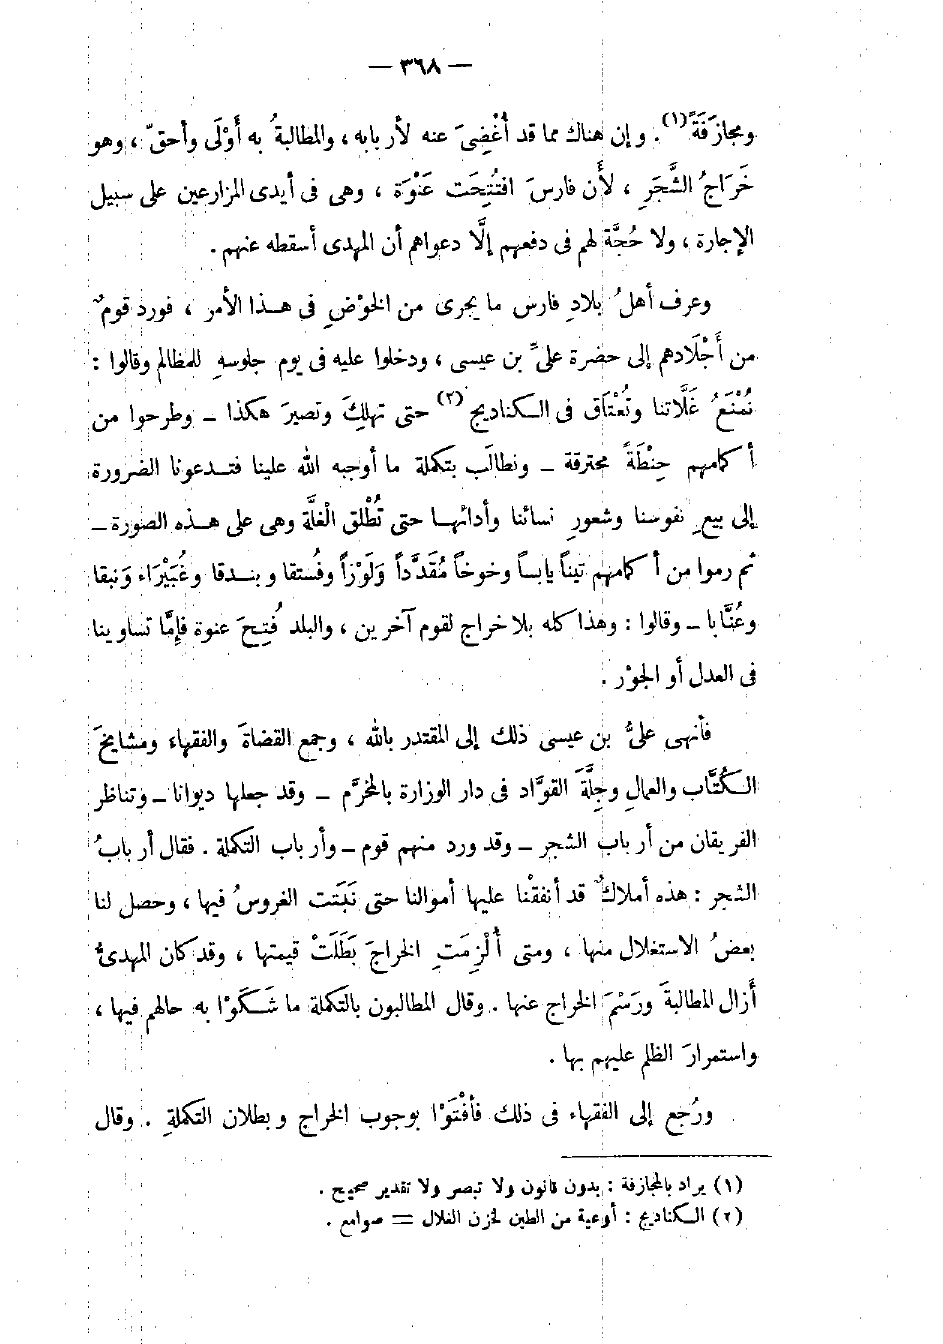 — ٣٦٨ —
ومجازَفَةً (١) . وإن هناك مما قد أُغْضِىَ عنه لأربابه ، والمطالبةُ به أَوْلَى وأحقّ ، وهو
خَرَاجُ الشَّجَرِ ، لأَن فارسَ افتُتِحَت عَنْوَة ، وهى فى أيدى المزارعين على سبيل
الإجارة ، ولا حُجَّة لهم فى دفعهم إلَّا دعواهم أن المهدى أسقطه عنهم .
وعرف أهلُ بلادِ فارس ما يجرى من الخوْضِ فى هـذا الأمر ، فورد قومٌ
من أَجْلَادهم إلى حضرة علىِّ بن عيسى ، ودخلوا عليه فى يوم جلوسهِ للمظالم وقالوا :
نُمْنَعُ غَلَّاتنا وتُعْتَاق فى الـكناديج (٢) حتى تهلِكَ وتصيرَ هكذا ــ وطرحوا من
أكمامهم حِنْطَةً محترقة ــ ونطالَب بتكملة ما أوجبه الله علينا فتـدعونا الضرورة
إلى بيعِ نفوسنا وشعورِ نسائنا وأدائهـا حتى تُطْلق الْغَلَّة وهى على هـذه الصورة ــ
ثم رموا من أكمامهم تيناً يابسـاً وخوخاً مُقَدَّداً وَلَوْزاً وفُستقا وبنـدقا وغُبَيْرَاء وَنبقا
وعُنَّابا ــ وقالوا : وهذا كله بلا خراج لقوم آخرين ، والبلد فُتِـحَ عنوة فإِمَّا تساوينا
فى العدل أو الجوْر .
فأنهى علىُّ بن عيسى ذلك إلى المقتدر بالله ، وجمع القضاةَ والفقهاء ومشايخَ
الـكُتَّاب والعمالِ وجِلَّةَ القوَّاد فى دار الوزارة بالمخرَّم ــ وقد جعلها ديوانا ــ وتناظر
الفريقان من أرباب الشجر ــ وقد ورد منهم قوم ــ وأرباب التكملة . فقال أربابُ
الشجر : هذه أملاكٌ قد أنفقْنا عليها أموالنا حتى نَبَتَت الغروسُ فيها ، وحصل لنا
بعضُ الاستغلال منها ، ومتى أُلْزِمَتِ الخراجَ بَطَلَتْ قيمتها ، وقد كان المهدىُّ
أَزال المطالبةَ ورَسْمَ الخراج عنها . وقال المطالبون بالتكملة ما شَـكَوْا به حالهم فيها ،
واستمرارَ الظلم عليهم بها .
ورُجع إلى الفقهاء فى ذلك فأفْتَوْا بوجوب الخراج وبطلان التكملةِ . وقال
(١) يراد بالمجازفة : بدون قانون ولا تبصر ولا تقدير صحيح .
(٢) الـكناديج : أوعية من الطين لخزن الغلال = صوامع .